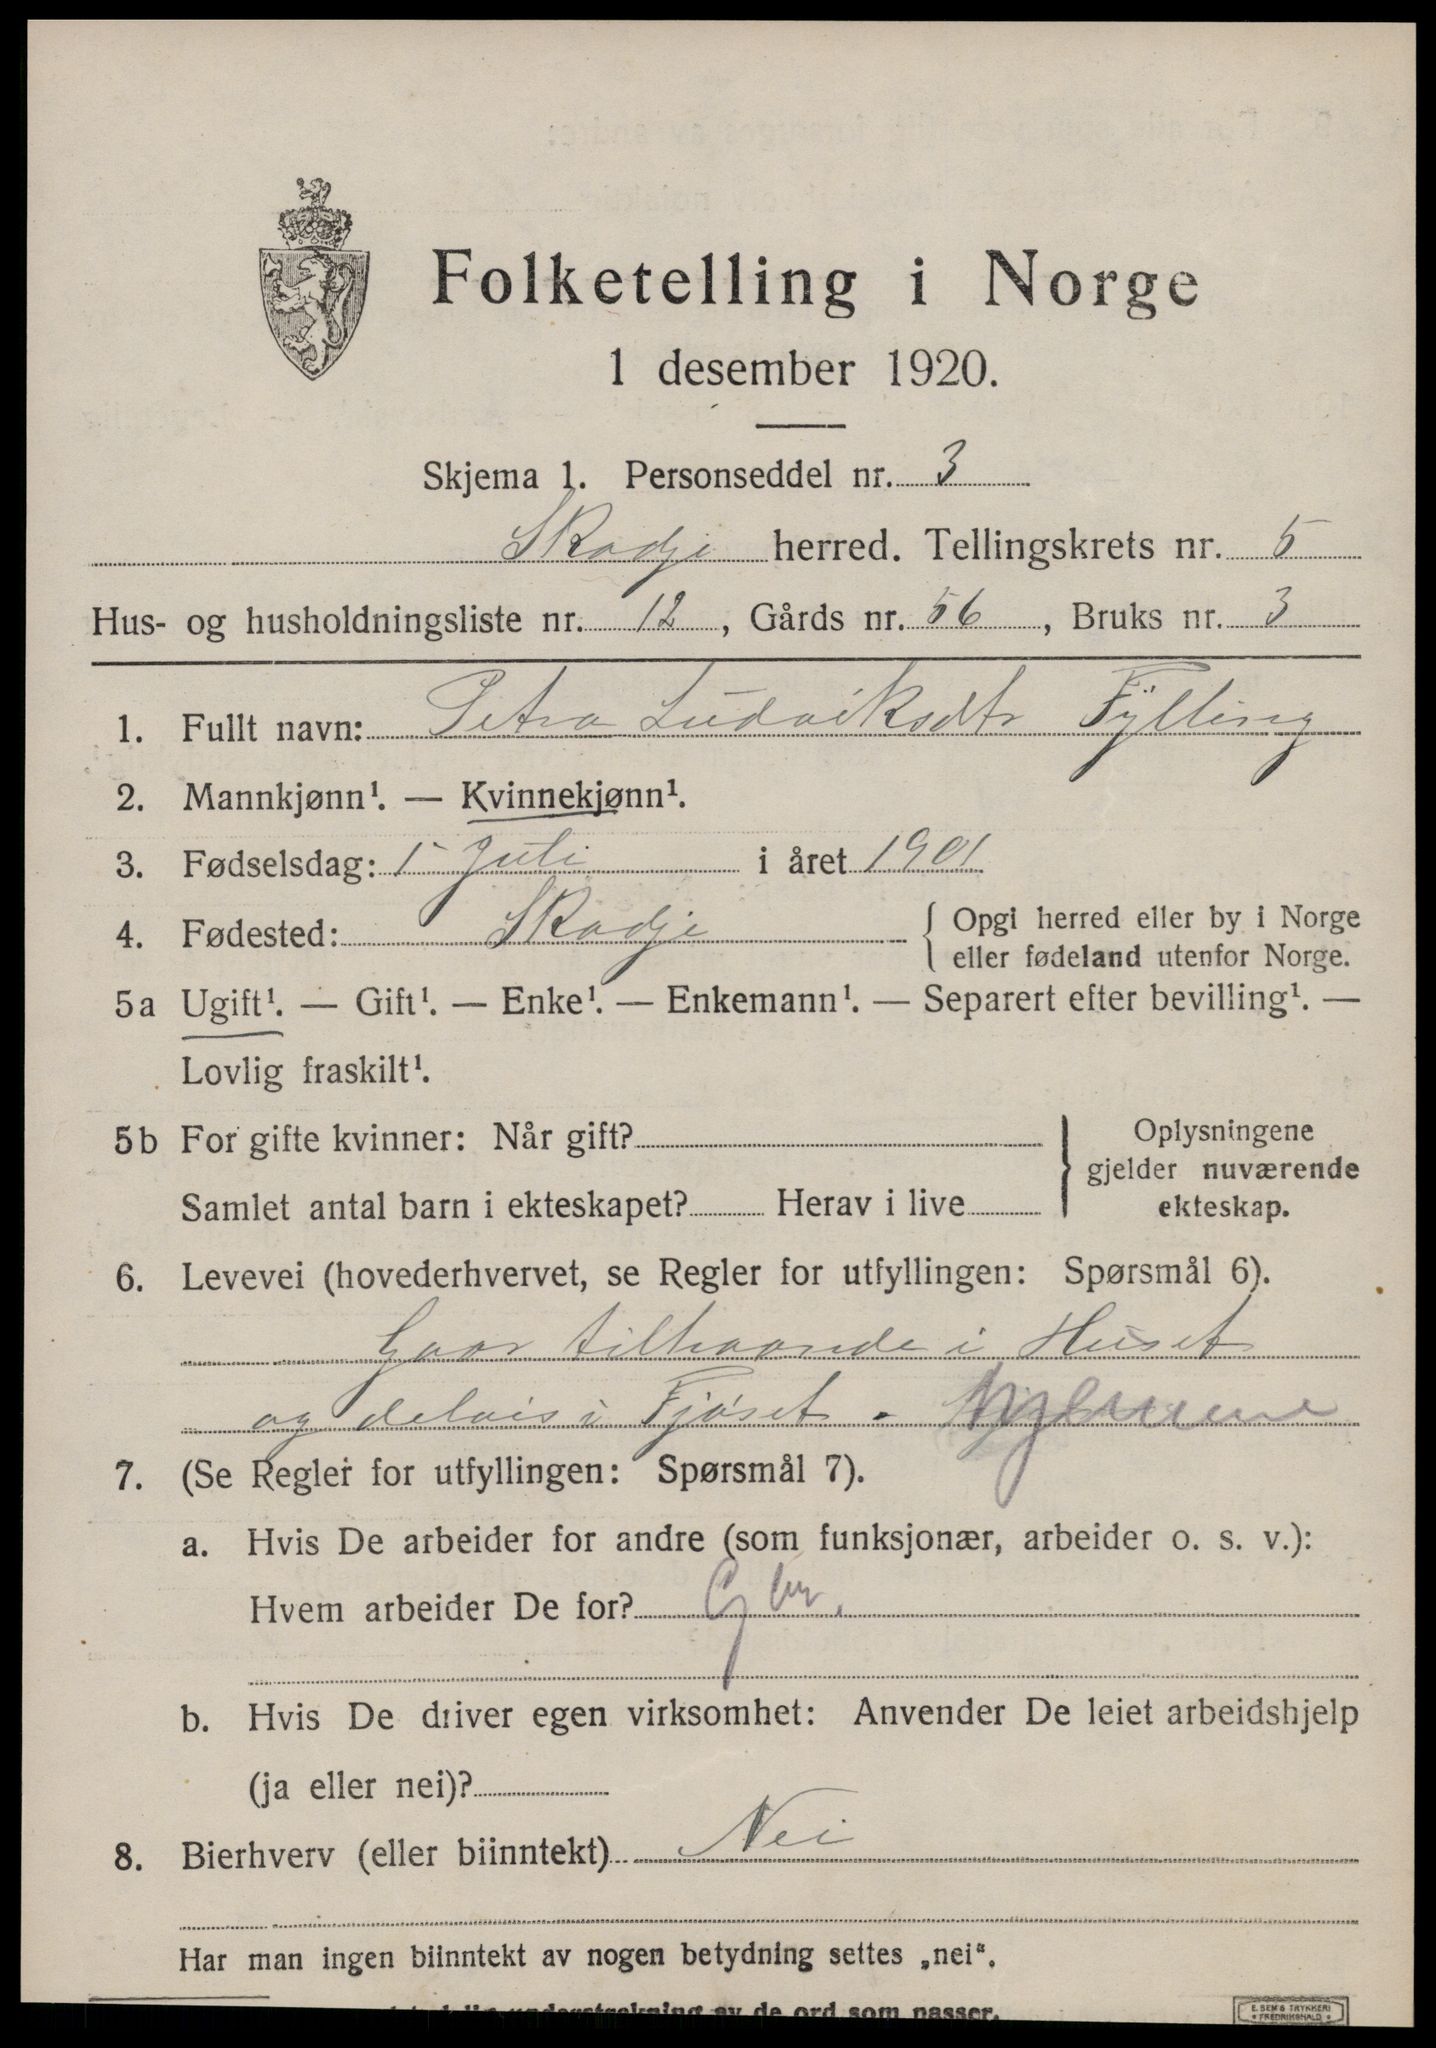 Folketelling i Norge
1 desember 1920.
Skjema 1. Personseddel nr. 3
Skodje herred. Tellingskrets nr. 5
Hus- og husholdningsliste nr. 12, Gårds nr. 56, Bruks nr. 3
1. Fullt navn: Petra Ludviksdtr Fylling
2. Mannkjønn¹. — Kvinnekjønn¹.
3. Fødselsdag: 1 Juli i året 1901
4. Fødested: Skodje { Opgi herred eller by i Norge
eller fødeland utenfor Norge.
5a Ugift¹. — Gift¹. — Enke¹. — Enkemann¹. — Separert efter bevilling¹. —
Lovlig fraskilt¹.
5b For gifte kvinner: Når gift? } Oplysningene
gjelder nuværende
ekteskap.
Samlet antal barn i ekteskapet? Herav i live
6. Levevei (hovederhvervet, se Regler for utfyllingen: Spørsmål 6).
Gaar tilhaande i Huset
og delvis i Fjøset.
7. (Se Regler for utfyllingen: Spørsmål 7).
a. Hvis De arbeider for andre (som funksjonær, arbeider o. s. v.):
Hvem arbeider De for?
b. Hvis De driver egen virksomhet: Anvender De leiet arbeidshjelp
(ja eller nei)?
8. Bierhverv (eller biinntekt) Nei
Har man ingen biinntekt av nogen betydning settes „nei“.
understrekning av de ord som passer.
E. SEM'S TRYKKERI
FREDRIKSHALD